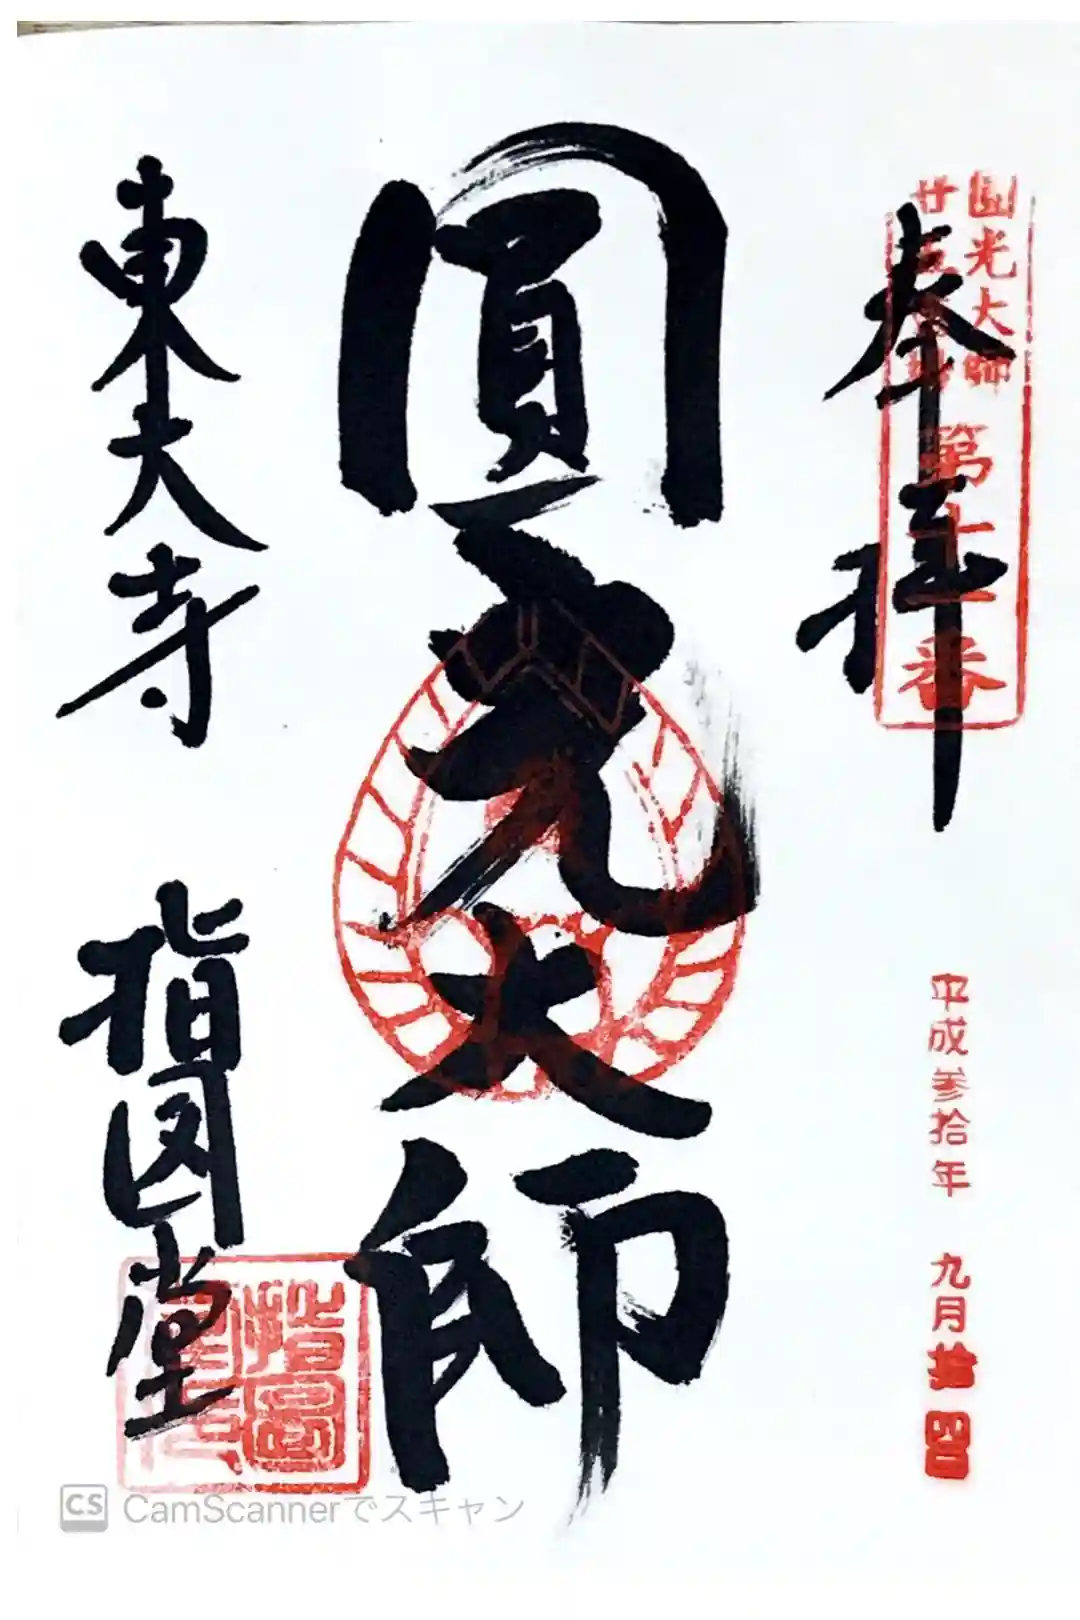 奉拝
圓光大師
廿五霊場
第十一番
平成参拾年 九月拾四日
圓光大師
東大寺
指図堂
CS CamScannerでスキャン